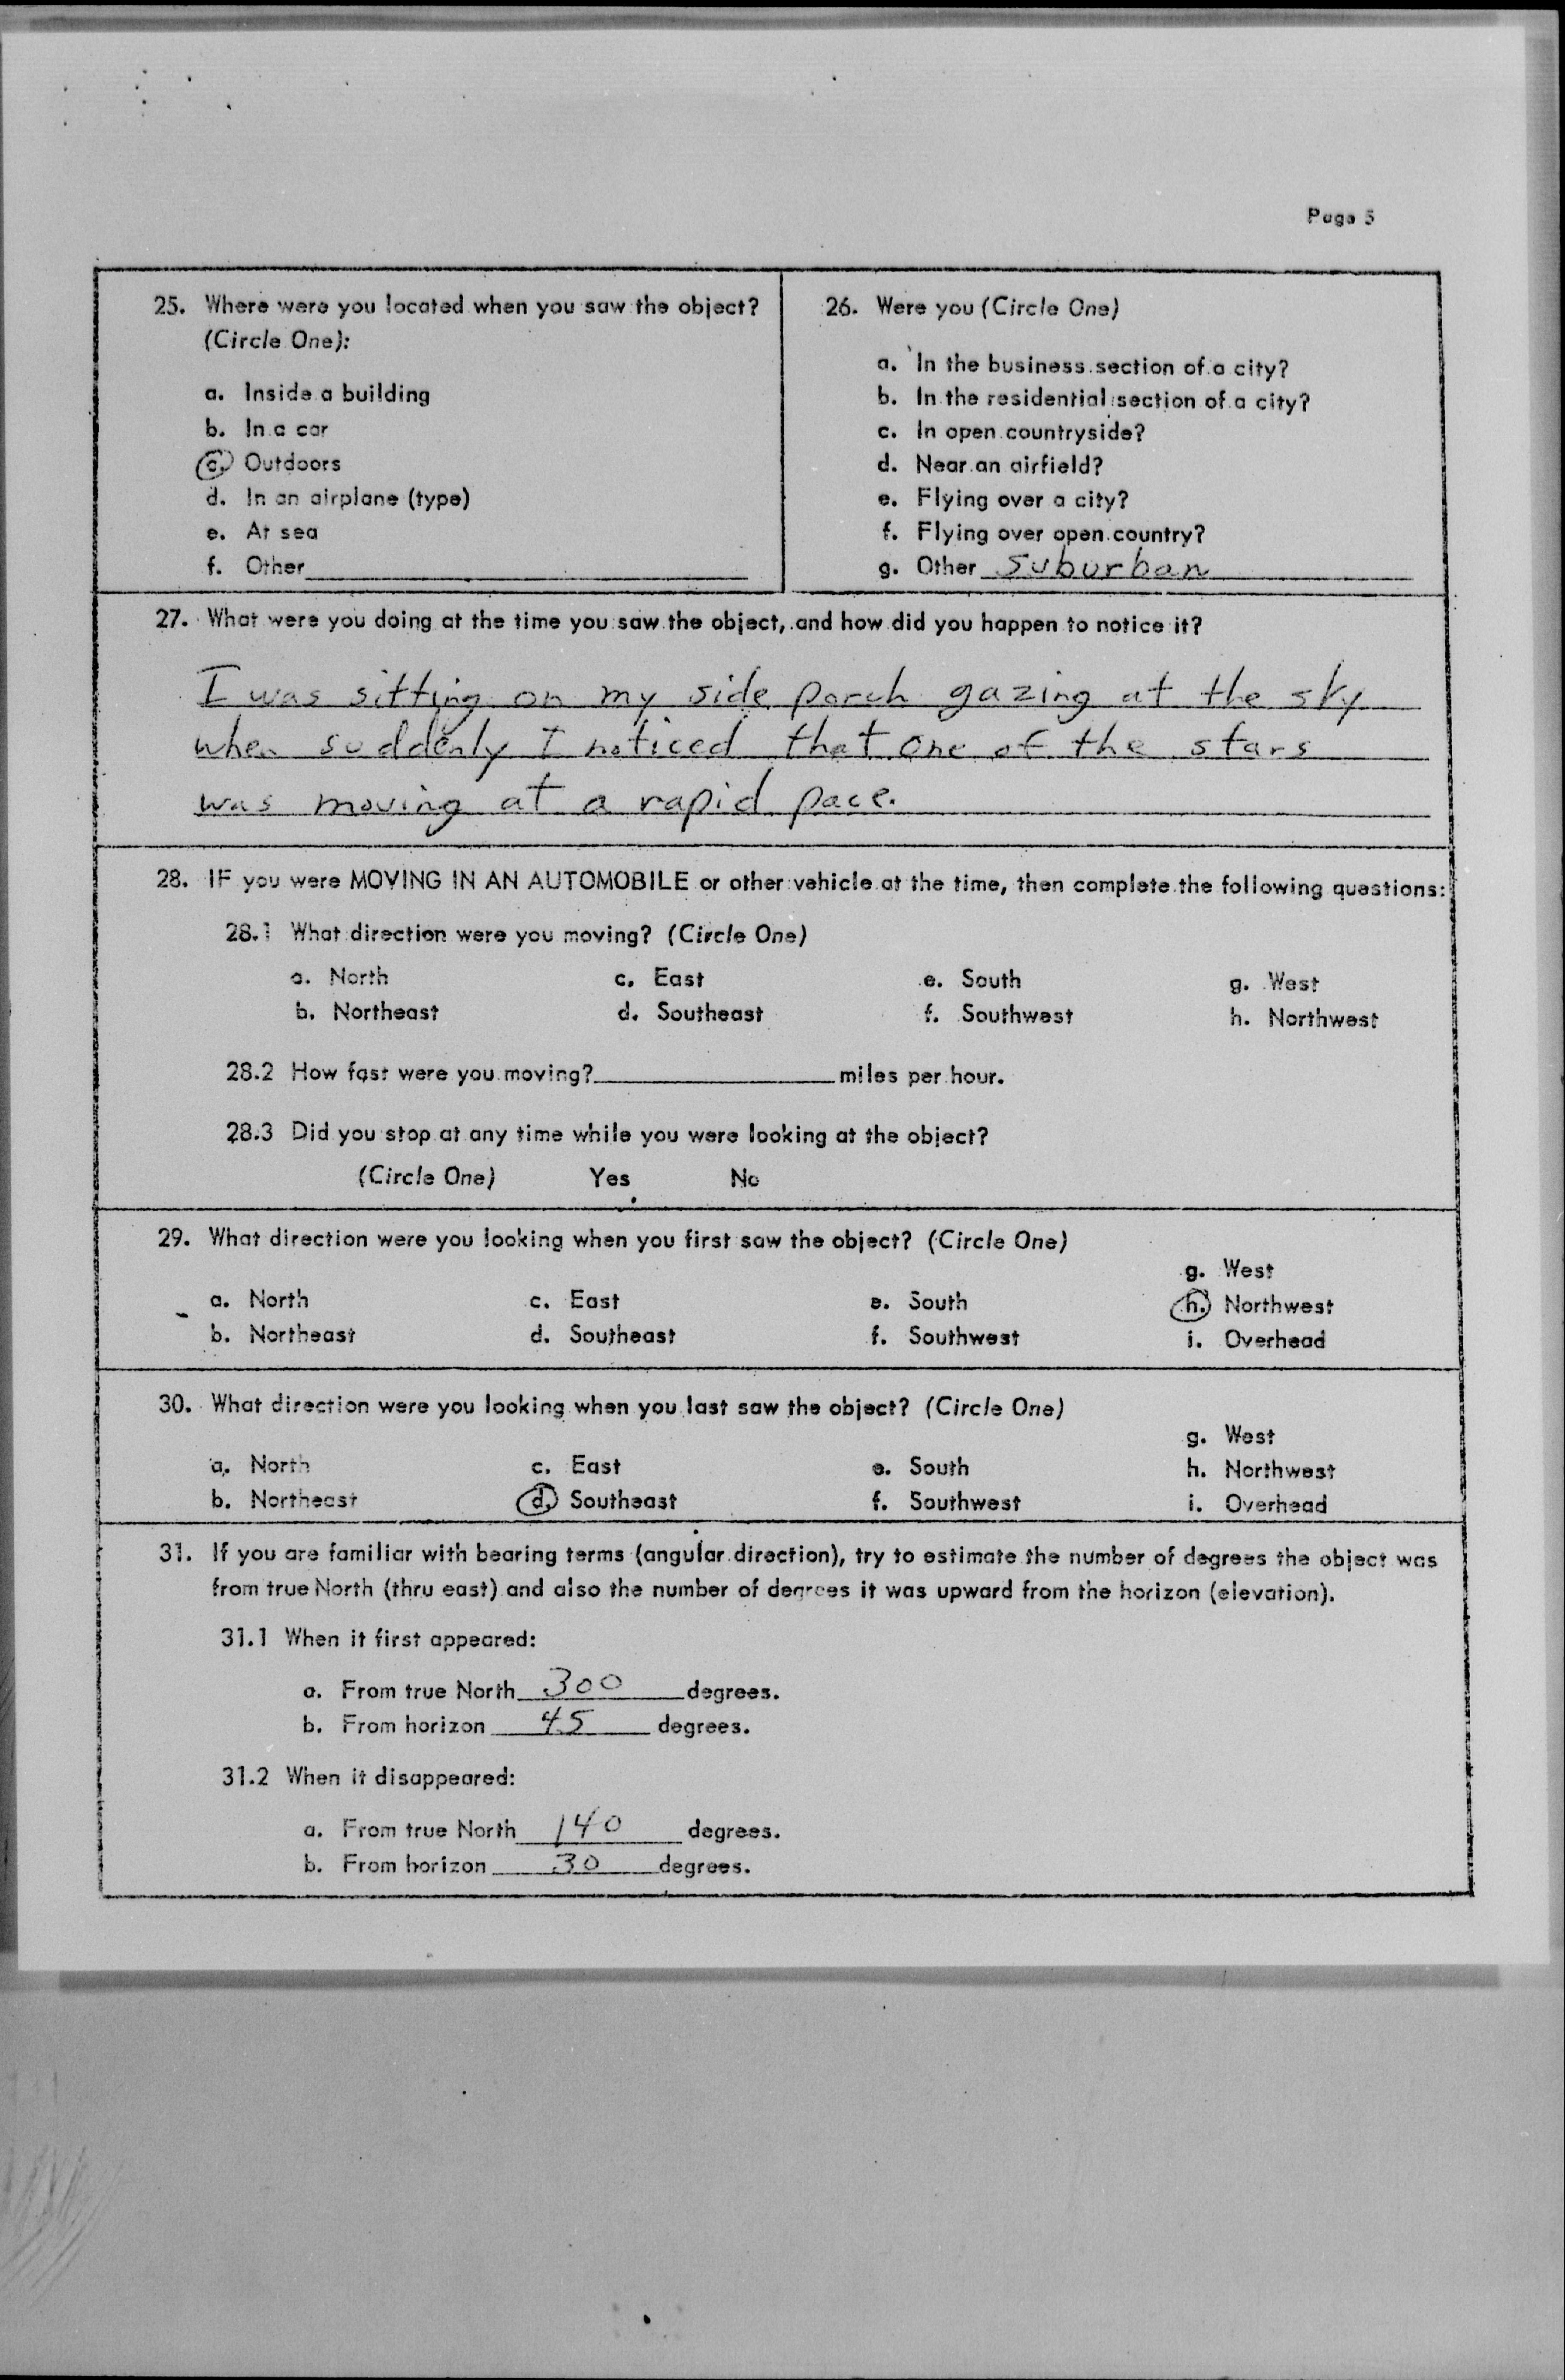 Page 5
25. Where were you located when you saw the object?
(Circle One):
a. Inside a building
b. In a car
c. Outdoors
d. In an airplane (type)
e. At sea
f. Other
26. Were you (Circle One)
a. In the business section of a city?
b. In the residential section of a city?
c. In open countryside?
d. Near an airfield?
e. Flying over a city?
f. Flying over open country?
g. Other suburban
27. What were you doing at the time you saw the object, and how did you happen to notice it?
I was sitting on my side porch gazing at the sky
when suddenly I noticed that one of the stars
was moving at a rapid pace.
28. IF you were MOVING IN AN AUTOMOBILE or other vehicle at the time, then complete the following questions:
28.1 What direction were you moving? (Circle One)
a. North c. East e. South g. West
b. Northeast d. Southeast f. Southwest h. Northwest
28.2 How fast were you moving? miles per hour.
28.3 Did you stop at any time while you were looking at the object?
(Circle One) Yes No
29. What direction were you looking when you first saw the object? (Circle One)
g. West
a. North c. East e. South h. Northwest
b. Northeast d. Southeast f. Southwest i. Overhead
30. What direction were you looking when you last saw the object? (Circle One)
g. West
a. North c. East e. South h. Northwest
b. Northeast d. Southeast f. Southwest i. Overhead
31. If you are familiar with bearing terms (angular direction), try to estimate the number of degrees the object was
from true North (thru east) and also the number of degrees it was upward from the horizon (elevation).
31.1 When it first appeared:
a. From true North 300 degrees.
b. From horizon 45 degrees.
31.2 When it disappeared:
a. From true North 140 degrees.
b. From horizon 30 degrees.